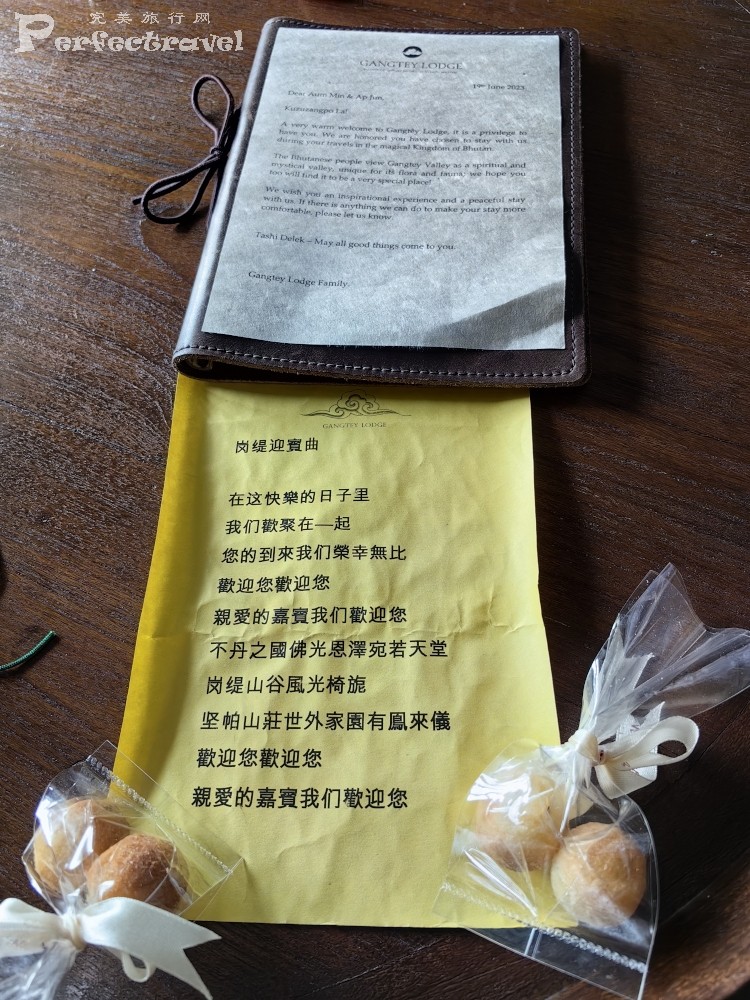 完美旅行网
Perfectravel
GANGTEY LODGE
19th June 2023
Dear Aum Min & Ap Jun,
Kuzuzangpo La!
A very warm welcome to Gangtey Lodge, it is a privilege to
have you. We are honored you have chosen to stay with us
during your travels in the magical Kingdom of Bhutan.
The Bhutanese people view Gangtey Valley as a spiritual and
mystical valley, unique for its flora and fauna; we hope you
too will find it to be a very special place!
We wish you an inspirational experience and a peaceful stay
with us. If there is anything we can do to make your stay more
comfortable, please let us know.
Tashi Delek – May all good things come to you.
Gangtey Lodge Family.
GANGTEY LODGE
岗缇迎賓曲
在这快樂的日子里
我们歡聚在—起
您的到來我们榮幸無比
歡迎您歡迎您
親愛的嘉賓我们歡迎您
不丹之國佛光恩澤宛若天堂
岗缇山谷風光椅旎
坚帕山莊世外家園有鳳來儀
歡迎您歡迎您
親愛的嘉賓我们歡迎您